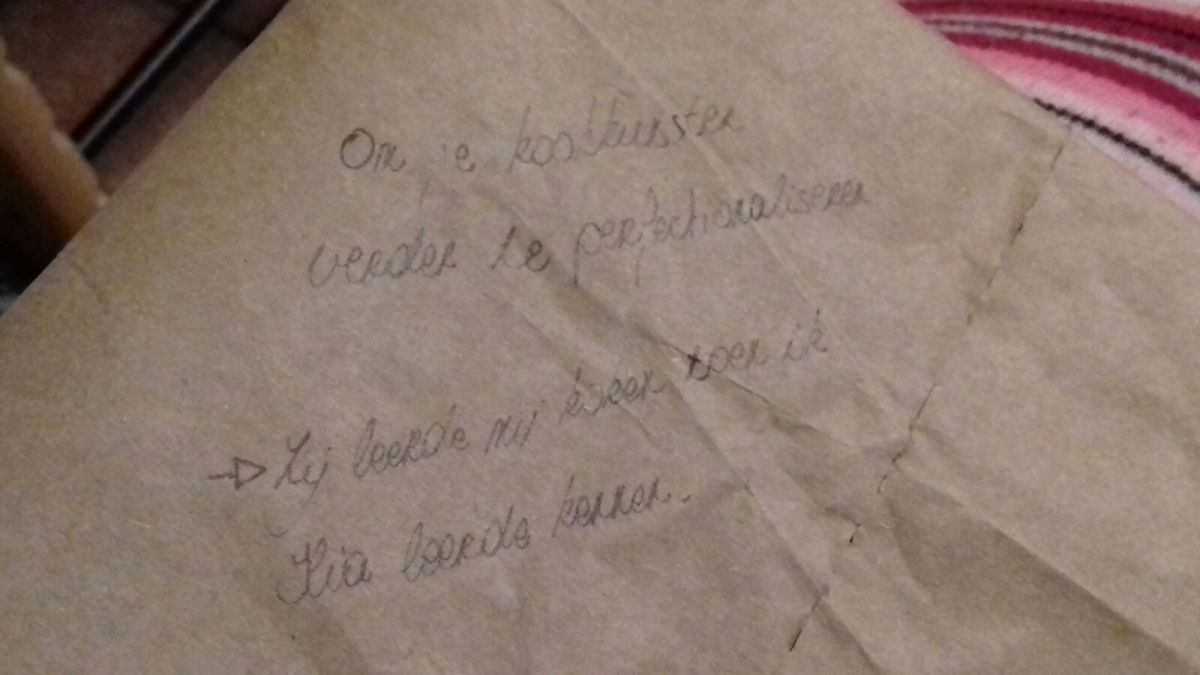 Om je kookkunsten
verder te perfectionaliseren
→ Zij leerde mij koken toen ik
Mia leerde kennen.